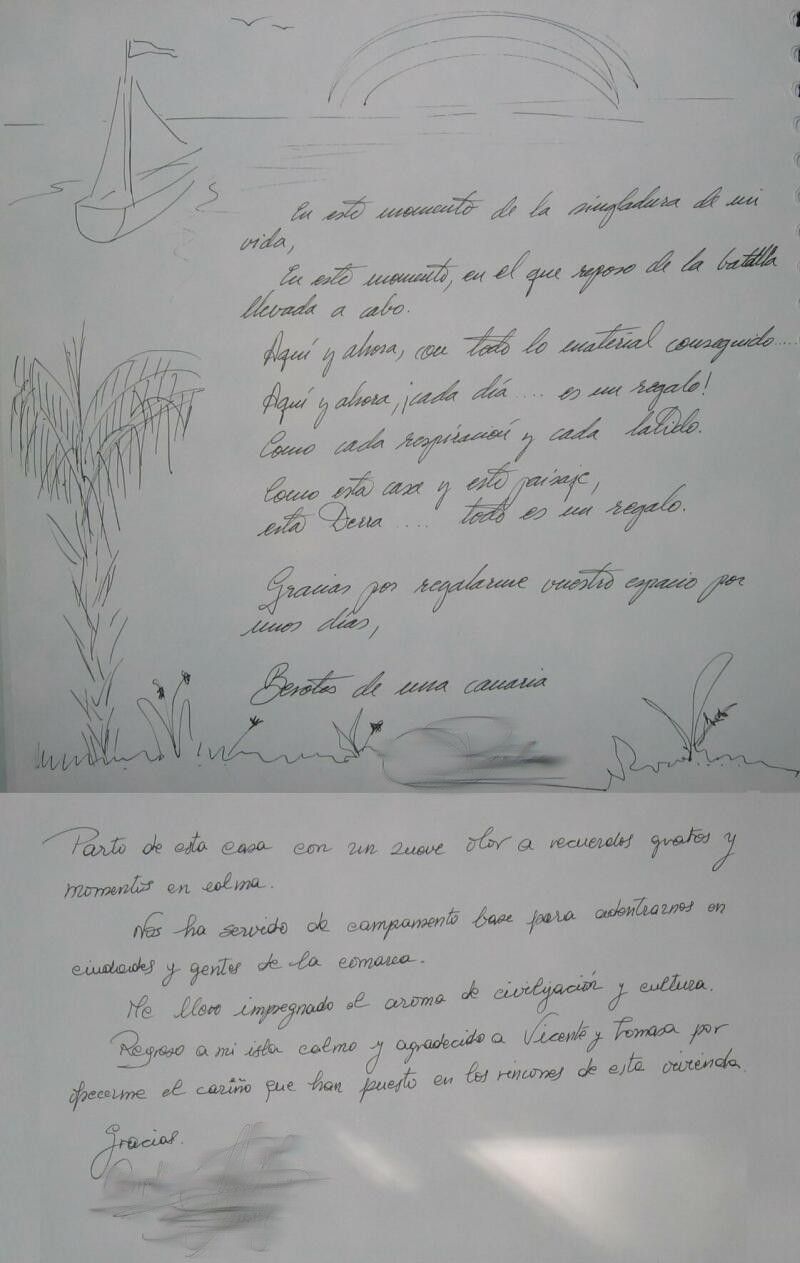 En este momento de la singladura de mi
vida,
En este momento, en el que reposo de la batalla
llevada a cabo.
Aquí y ahora, con todo lo material conseguido.....
Aquí y ahora, ¡cada día .... es un regalo!
Como cada respiración y cada latido.
Como esta casa y este paisaje,
esta Tierra .... todo es un regalo.
Gracias por regalarme vuestro espacio por
unos días,
Besotes de una canaria
Parto de esta casa con un suave olor a recuerdos gratos y
momentos en calma.
Nos ha servido de campamento base para adentrarnos en
ciudades y gentes de la comarca.
Me llevo impregnado el aroma de civilización y cultura.
Regreso a mi isla calmo y agradecido a Vicente y Tomasa por
ofrecerme el cariño que han puesto en los rincones de esta vivienda.
Gracias.